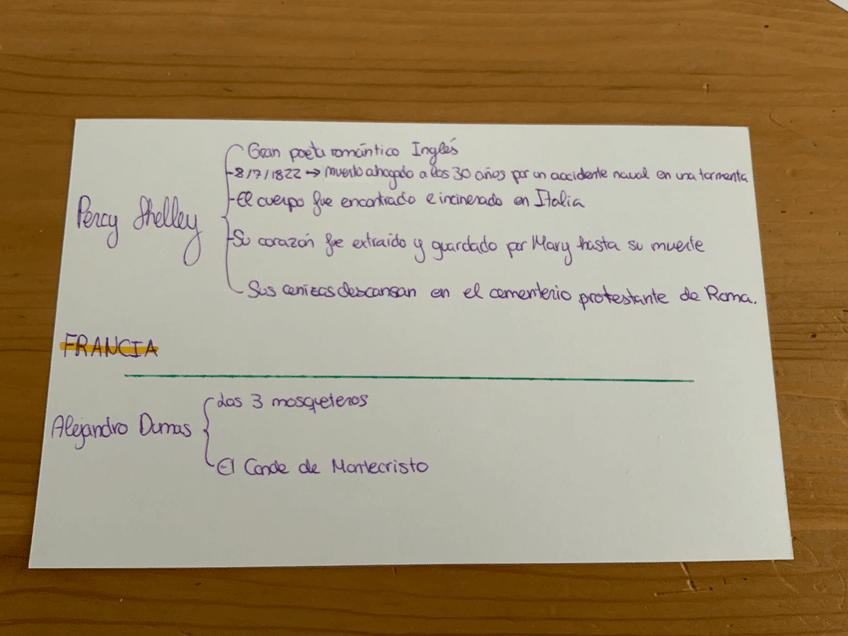 Percy Shelley
Gran poeta romántico Inglés
-8/7/1822 → muerto ahogado a los 30 años por un accidente naval en una tormenta
-El cuerpo fue encontrado e incinerado en Italia
-Su corazón fue extraído y guardado por Mary hasta su muerte
Sus cenizas descansan en el cementerio protestante de Roma.
FRANCIA
Alejandro Dumas
Los 3 mosqueteros
El Conde de Montecristo